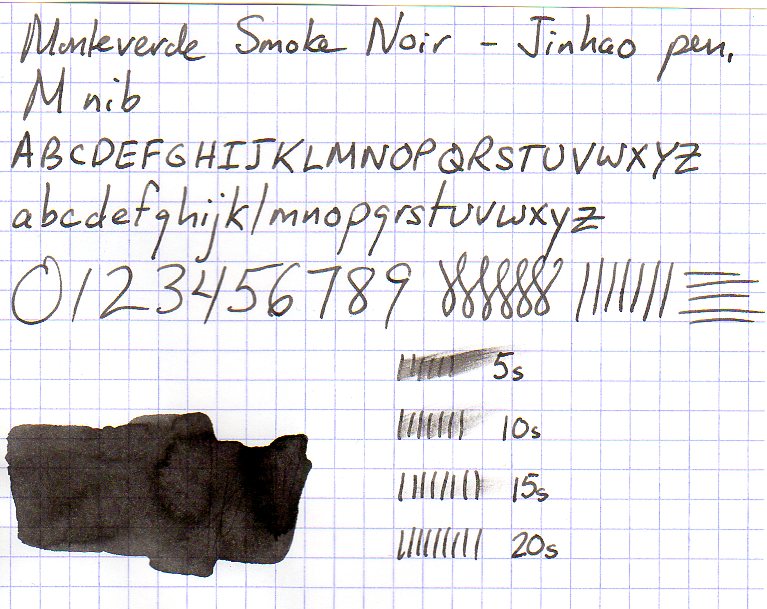 Monteverde Smoke Noir - Jinhao pen.
M nib
ABCDEFGHIJKLMNOPQRSTUVWXYZ
abcdefghijklmnopqrstuvwxyz
0123456789
5s
10s
15s
20s